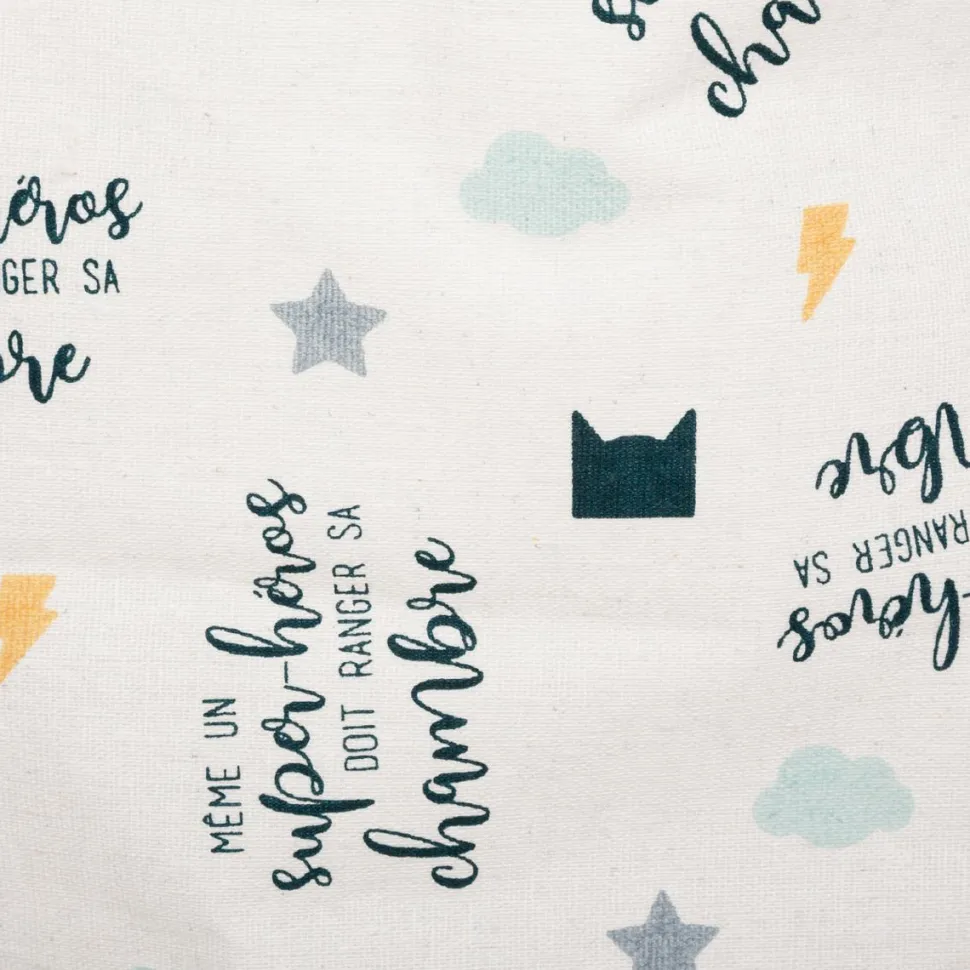 cha
éros
GER SA
bre
MÊME UN
super-héros
DOIT RANGER SA
chambre
-héros
RANGER SA
bre